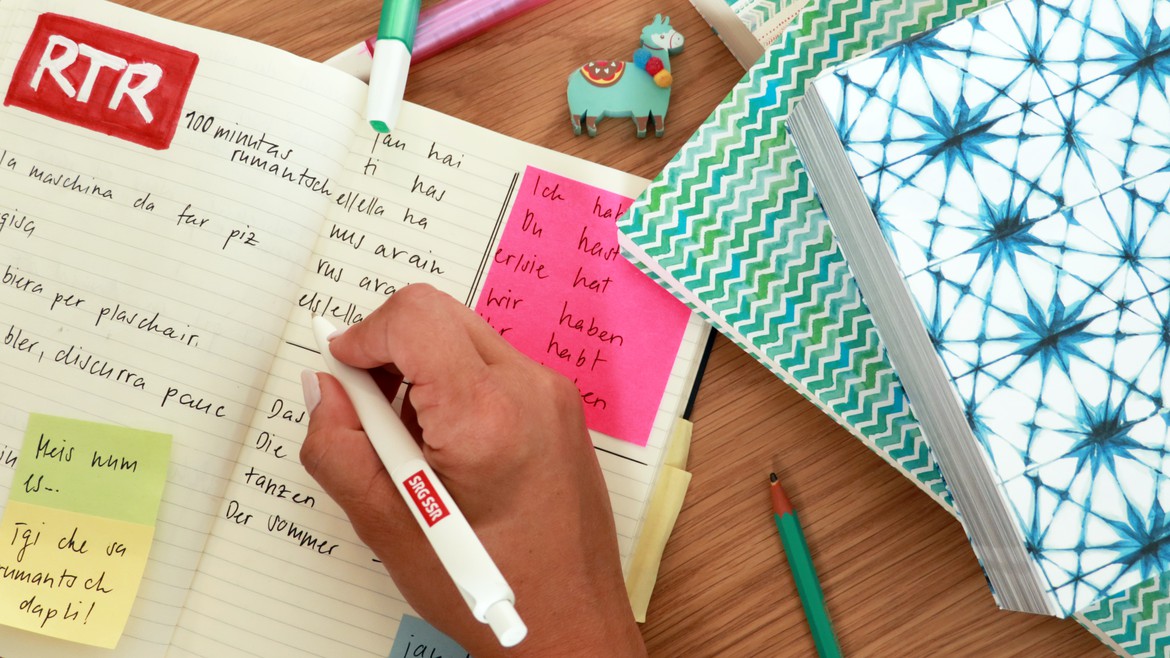 RTR
100 minutas
rumantsch
la maschina da far piz
gisa
biera per plaschair.
bler, discurra pauc
Meis num
es...
Tgi che sa
rumantsch
dapli!
jau hai
ti has
el/ella ha
nus avain
vus
els/ella
Das
Die
tanzen
Der Sommer
Ich
Du hast
er/sie hat
wir haben
habt
SRG SSR